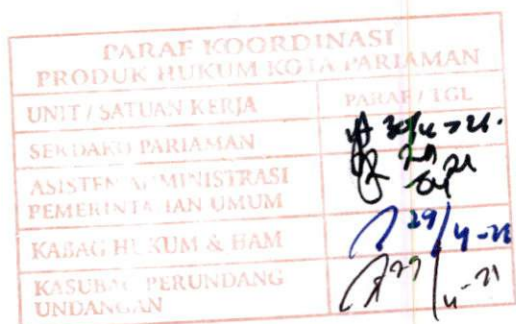 PARAF KOORDINASI
PRODUK HUKUM KOTA PARIAMAN
UNIT / SATUAN KERJA PARAF / TGL
SEKDAKO PARIAMAN 30/4-21.
ASISTEN ADMINISTRASI
PEMERINTAHAN UMUM
KABAG HUKUM & HAM 29/4-21
KASUBAG PERUNDANG
UNDANGAN 27/4-21